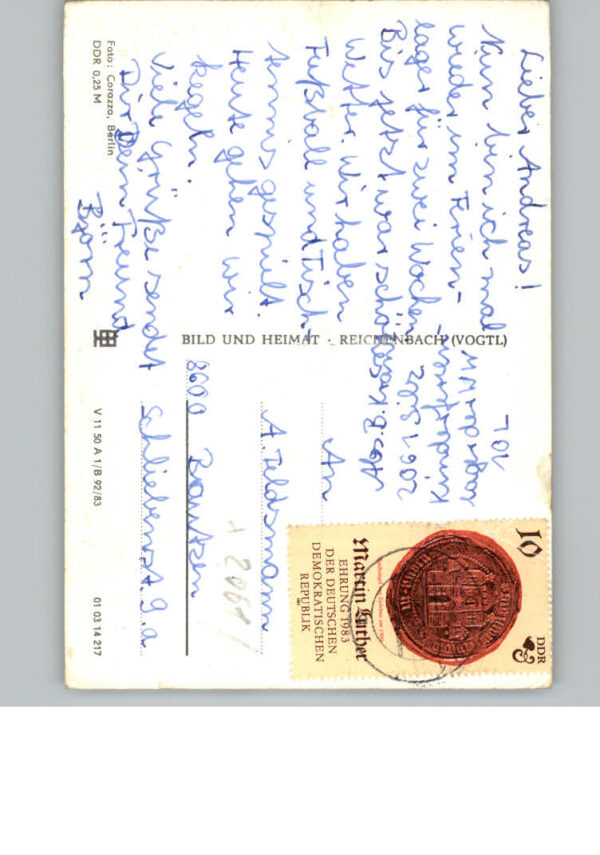 Lieber Andreas!
Nun bin ich mal
wieder im Ferien-
lager für zwei Wochen
Bis jetzt war schönes
Wetter. Wir haben
Fußball und Tisch-
tennis gespielt.
Heute gehen wir
kegeln.
Viele Grüße sendet
Dir Dein Freund
Björn
Foto: Corazza, Berlin
DDR 0,25 M
BILD UND HEIMAT · REICHENBACH (VOGTL)
V 11 50 A 1/B 92/83
01 03 14 217
10
DDR
Martin Luther
EHRUNG 1983
DER DEUTSCHEN
DEMOKRATISCHEN
REPUBLIK
An
A. Feldsmann
8600 Bautzen
Schliebenst. 9a